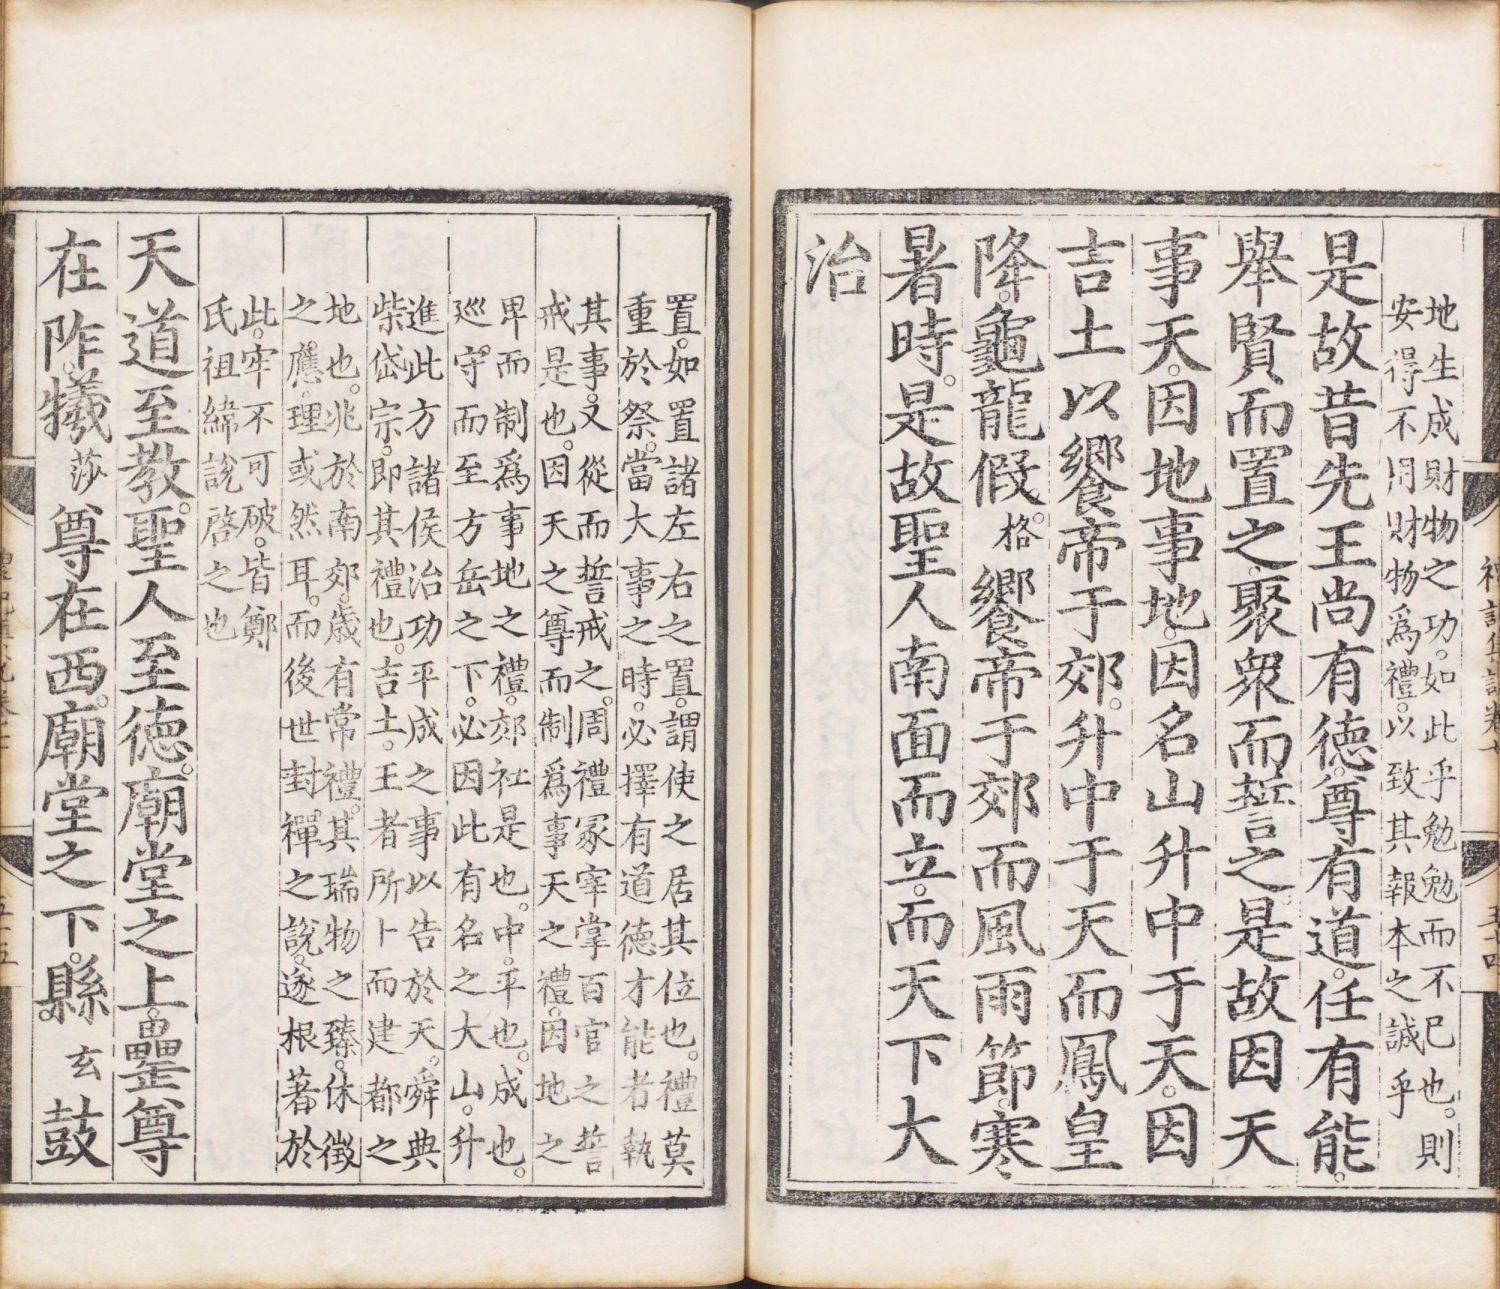 地生成財物之功。如此乎勉勉而不已也。則
安得不用財物爲禮。以致其報本之誠乎
是故昔先王尚有德。尊有道。任有能。
舉賢而置之。聚衆而誓之。是故因天
事天。因地事地。因名山升中于天。因
吉土以饗帝于郊。升中于天而鳳皇
降。龜龍假。格饗帝于郊而風雨節。寒
暑時。是故聖人南面而立。而天下大
治
禮記集說卷
五十四
置。如置諸左右之置。謂使之居其位也。禮莫
重於祭。當大事之時。必擇有道德才能者執
其事。又從而誓戒之。周禮冢宰掌百官之誓
戒是也。因天之尊而制爲事天之禮。因地之
卑而制爲事地之禮。郊社是也。中。平也。成也。
巡守。而至方岳之下。必因此有名之大山。升
進此方諸侯治功平成之事以告於天。舜典
柴岱宗。即其禮也。吉土。王者所卜而建都之
地也。兆於南郊。歲有常禮。其瑞物之臻。休徵
之應。理或然耳。而後世封禪之說。遂根著於
此。牢不可破。皆鄭
氏祖緯說啓之也
天道至教。聖人至德。廟堂之上。罍尊
在阼。犧莎尊在西。廟堂之下。縣玄鼓
五十五